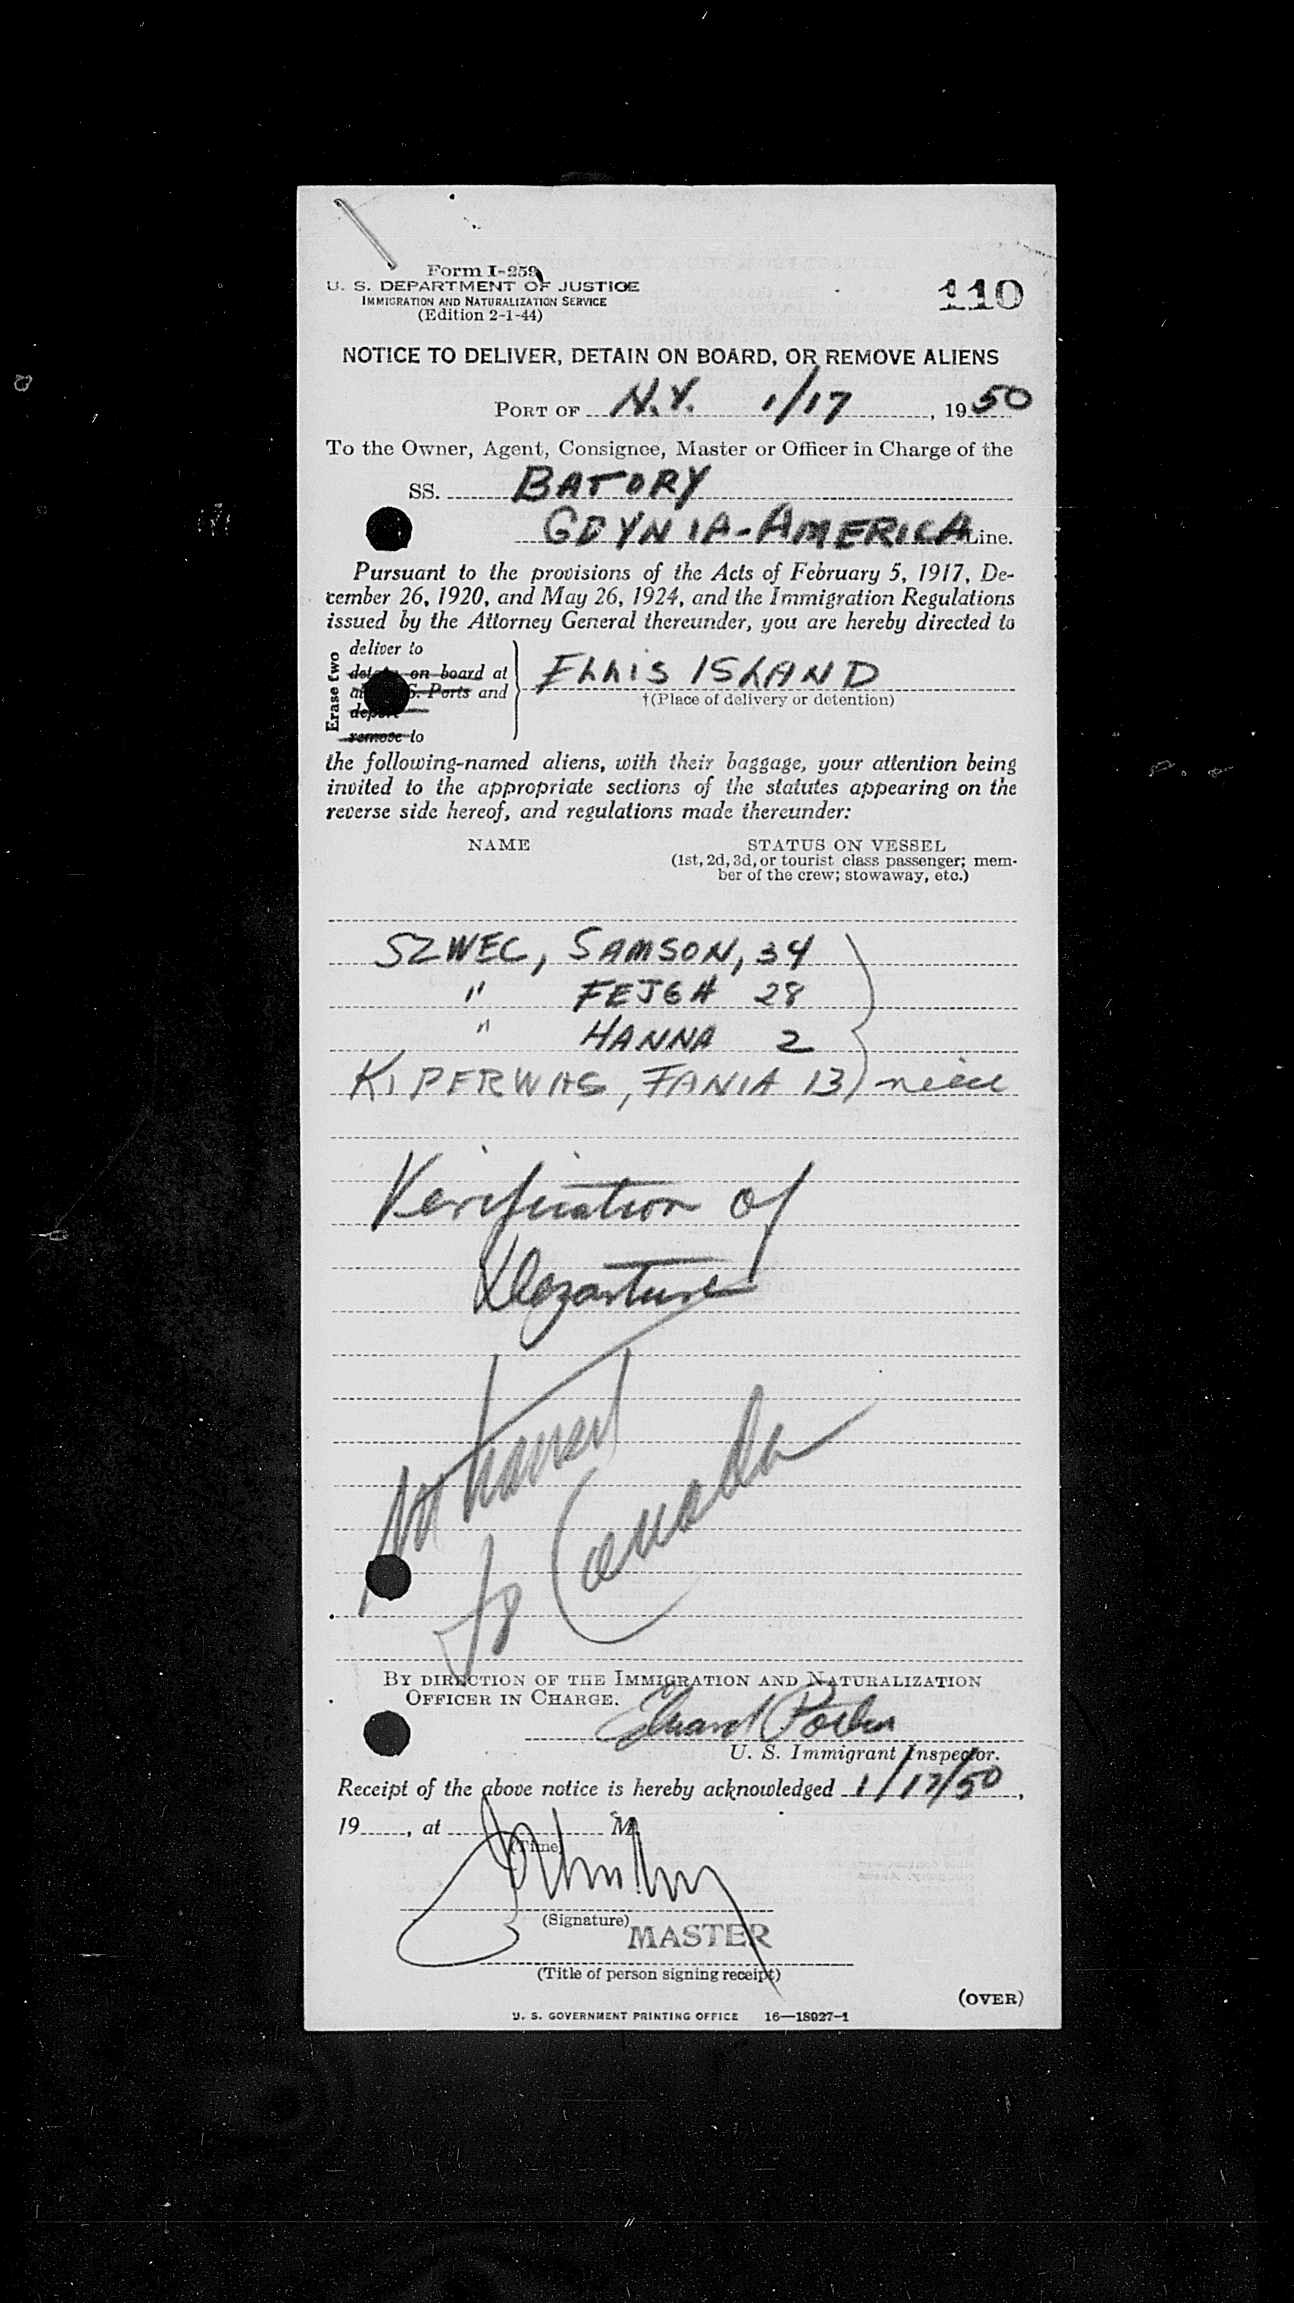 Form I-259
U. S. DEPARTMENT OF JUSTICE
IMMIGRATION AND NATURALIZATION SERVICE
(Edition 2-1-44)
110
NOTICE TO DELIVER, DETAIN ON BOARD, OR REMOVE ALIENS
PORT OF N.Y. 1/17, 1950
To the Owner, Agent, Consignee, Master or Officer in Charge of the
SS. BATORY
GDYNIA-AMERICA Line.
Pursuant to the provisions of the Acts of February 5, 1917, De-
cember 26, 1920, and May 26, 1924, and the Immigration Regulations
issued by the Attorney General thereunder, you are hereby directed to
Erase two
deliver to
on board at
S. Ports and
deport
remove to
ELLIS ISLAND
†(Place of delivery or detention)
the following-named aliens, with their baggage, your attention being
invited to the appropriate sections of the statutes appearing on the
reverse side hereof, and regulations made thereunder:
NAME
STATUS ON VESSEL
(1st, 2d, 3d, or tourist class passenger; mem-
ber of the crew; stowaway, etc.)
SZWEC, SAMSON, 34
" FEJGA 28
" HANNA 2
KIPERWAS, FANIA 13 niece
Verification of
Departure
transit
to Canada
BY DIRECTION OF THE IMMIGRATION AND NATURALIZATION
OFFICER IN CHARGE.
U. S. Immigrant Inspector.
Receipt of the above notice is hereby acknowledged 1/17/50,
19, at M.
(Time)
(Signature)
MASTER
(Title of person signing receipt)
(OVER)
U. S. GOVERNMENT PRINTING OFFICE 16—18027-1